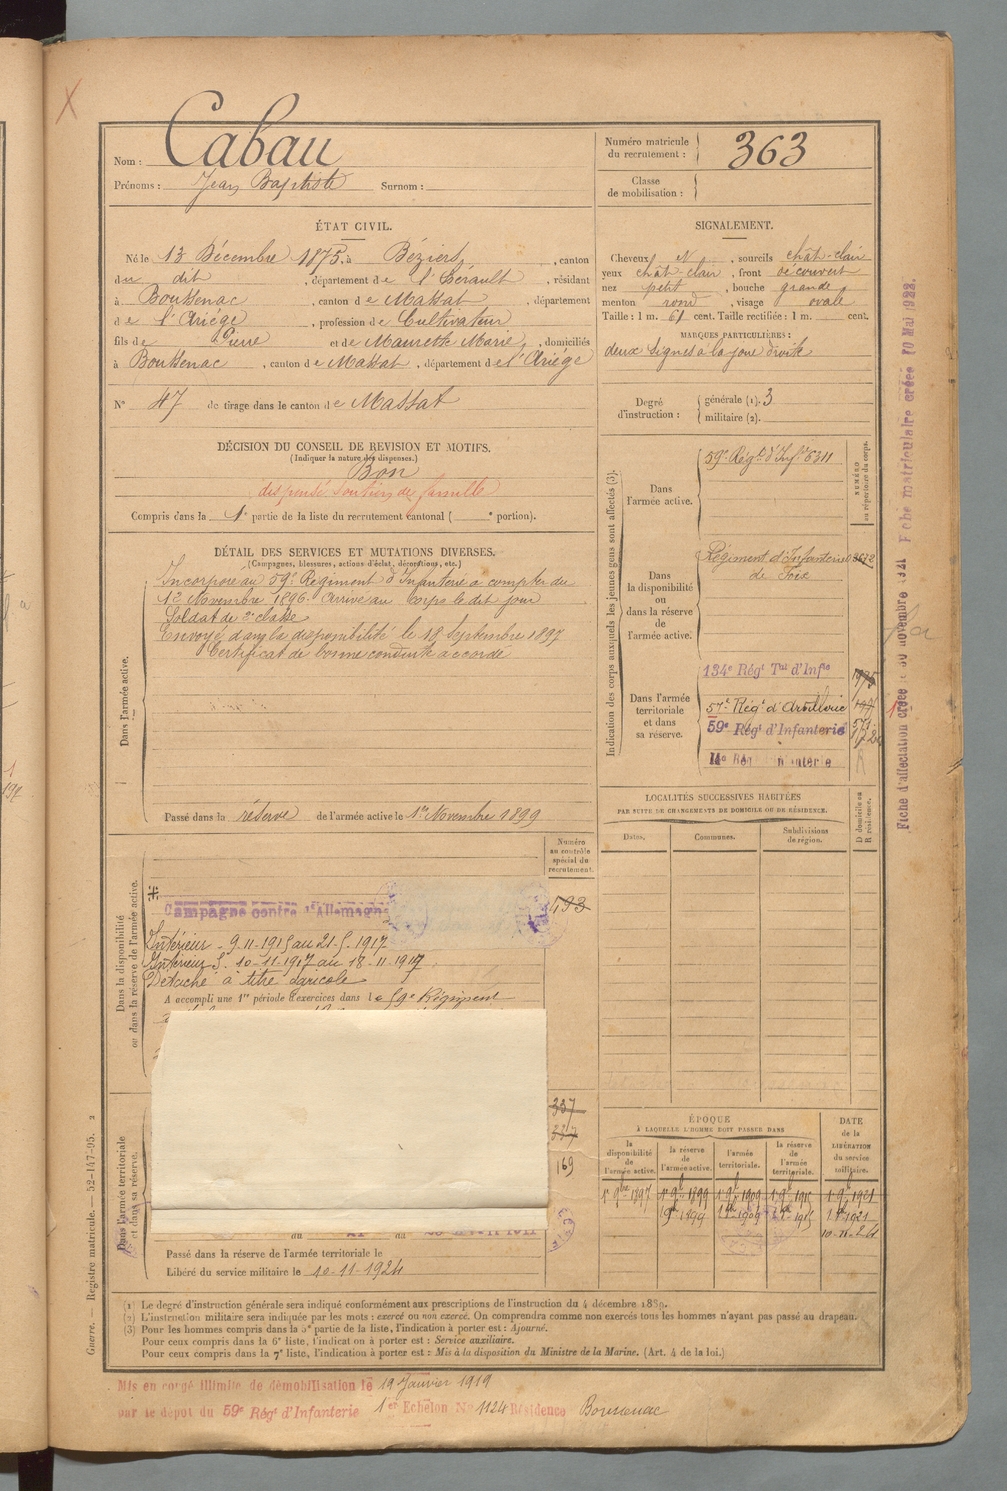 Cabau
Nom :
Prénoms : Jean Baptiste Surnom :
Numéro matricule du recrutement : 363
Classe de mobilisation :
ÉTAT CIVIL.
Né le 13 Décembre 1875, à Béziers, canton
du dit, département de l'Hérault, résidant
à Boussenac, canton de Massat, département
de l'Ariége, profession de Cultivateur
fils de Pierre et de Maurette Marie, domiciliés
à Boussenac, canton de Massat, département de l'Ariége
N° 47 de tirage dans le canton de Massat
SIGNALEMENT.
Cheveux et, sourcils chât-clair
yeux chât-clair, front découvert
nez petit, bouche grande
menton rond, visage ovale
Taille : 1 m. 61 cent. Taille rectifiée : 1 m. cent.
MARQUES PARTICULIÈRES :
deux signes à la joue droite
Degré d'instruction : générale (1). 3
militaire (2).
DÉCISION DU CONSEIL DE REVISION ET MOTIFS.
(Indiquer la nature des dispenses.)
Bon
dispensé soutien de famille
Compris dans la 1e partie de la liste du recrutement cantonal ( e portion).
DÉTAIL DES SERVICES ET MUTATIONS DIVERSES.
(Campagnes, blessures, actions d'éclat, décorations, etc.)
Dans l'armée active.
Incorporé au 59e Régiment d'Infanterie à compter du
12 Novembre 1896. Arrivé au corps le dit jour
Soldat de 2e classe
Envoyé dans la disponibilité le 18 Septembre 1897
Certificat de bonne conduite accordé
Passé dans la réserve de l'armée active le 1er Novembre 1899
Indication des corps auxquels les jeunes gens sont affectés (3).
NUMÉRO au répertoire du corps.
Dans l'armée active.
59e Régt d'Infie 6311
Dans la disponibilité ou dans la réserve de l'armée active.
Régiment d'Infanterie
de Foix
Dans l'armée territoriale et dans sa réserve.
134e Régt Tal d'Infie
57e Régt d'Artillerie
59e Régt d'Infanterie
14e Rég d'Infanterie
LOCALITÉS SUCCESSIVES HABITÉES
PAR SUITE DE CHANGEMENTS DE DOMICILE OU DE RÉSIDENCE.
D domicile ou R résidence.
Dates. Communes. Subdivisions de région.
Numéro au contrôle spécial du recrutement.
Dans la disponibilité ou dans la réserve de l'armée active.
Campagne contre l'Allemagne
593
Intérieur - 9-11-1915 au 21-5-1917
Intérieur S. 10-11-1917 au 18-11-1917
Détaché à titre agricole
A accompli une 1re période d'exercices dans le 59e Régiment
Dans l'armée territoriale et dans sa réserve.
337
337
169
Passé dans la réserve de l'armée territoriale le
Libéré du service militaire le 10-11-1924
ÉPOQUE
À LAQUELLE L'HOMME DOIT PASSER DANS
la disponibilité de l'armée active.
la réserve de l'armée active.
l'armée territoriale.
la réserve de l'armée territoriale.
DATE de la LIBÉRATION du service militaire.
1er 9bre 1897 1er 9b 1899 1er 9b 1909 1er 9b 1915 1er 9b 1921
10-11-24
(1) Le degré d'instruction générale sera indiqué conformément aux prescriptions de l'instruction du 4 décembre 1889.
(2) L'instruction militaire sera indiquée par les mots : exercé ou non exercé. On comprendra comme non exercés tous les hommes n'ayant pas passé au drapeau.
(3) Pour les hommes compris dans la 5e partie de la liste, l'indication à porter est : Ajourné.
Pour ceux compris dans la 6e liste, l'indication à porter est : Service auxiliaire.
Pour ceux compris dans la 7e liste, l'indication à porter est : Mis à la disposition du Ministre de la Marine. (Art. 4 de la loi.)
Mis en congé illimité de démobilisation le 19 Janvier 1919
par le dépôt du 59e Régt d'Infanterie 1er Echelon No 1124 Résidence Boussenac
Guerre. — Registre matricule. — 52-147-95.
Fiche d'affectation créée le 30 novembre 1921
Fiche matriculaire créée 10 Mai 1922.